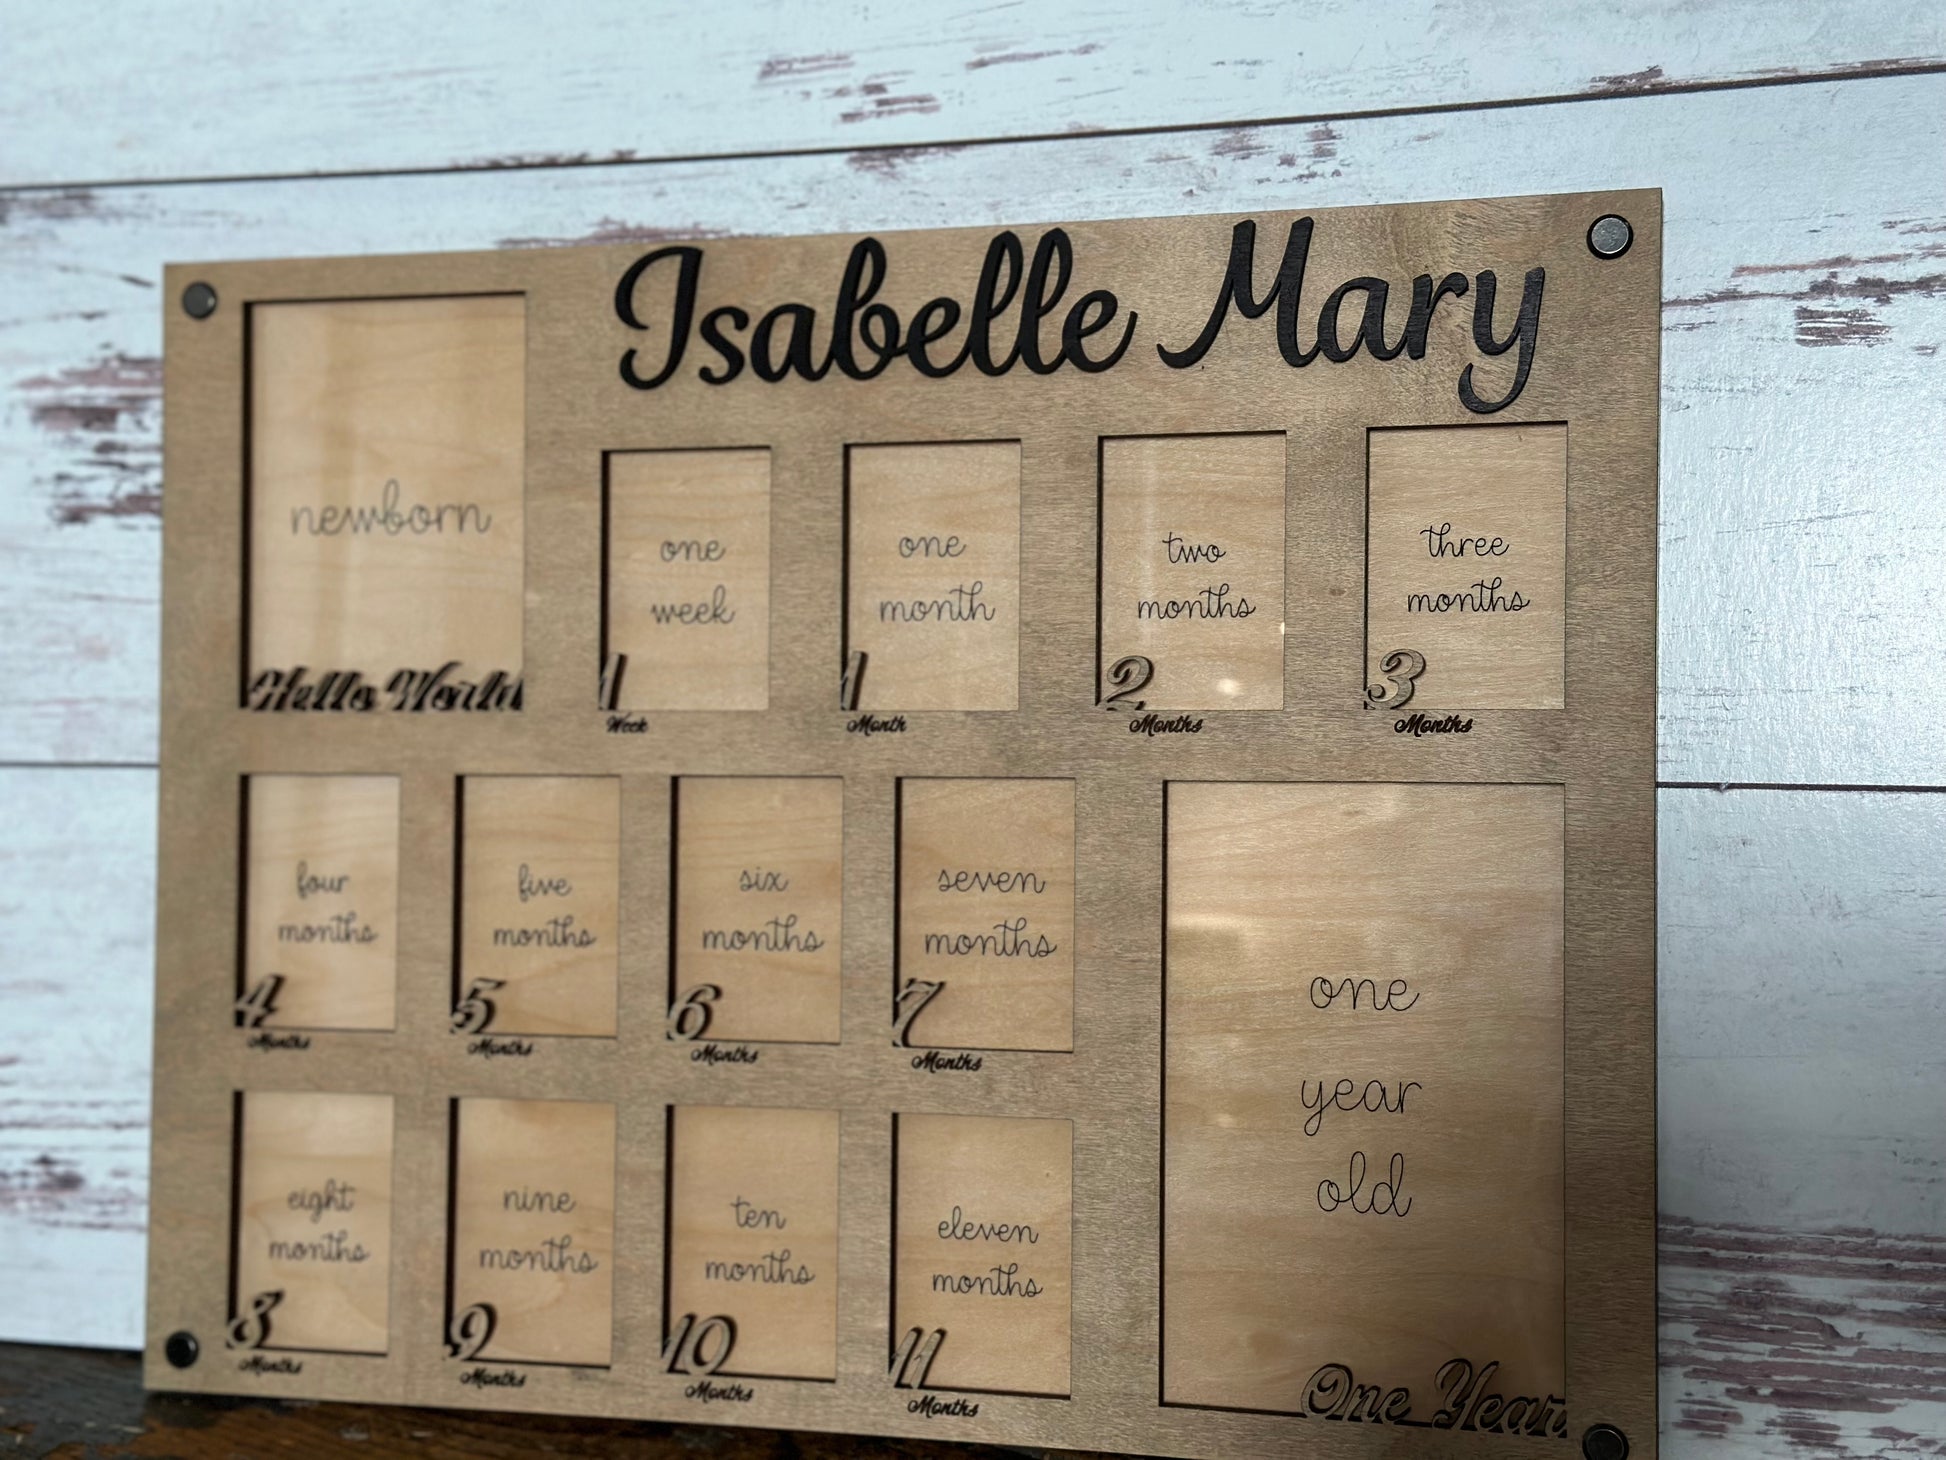 Isabelle Mary
newborn
Hello World
one
week
1
Week
one
month
1
Month
two
months
2
Months
three
months
3
Months
four
months
4
Months
five
months
5
Months
six
months
6
Months
seven
months
7
Months
eight
months
8
Months
nine
months
9
Months
ten
months
10
Months
eleven
months
11
Months
one
year
old
One Year